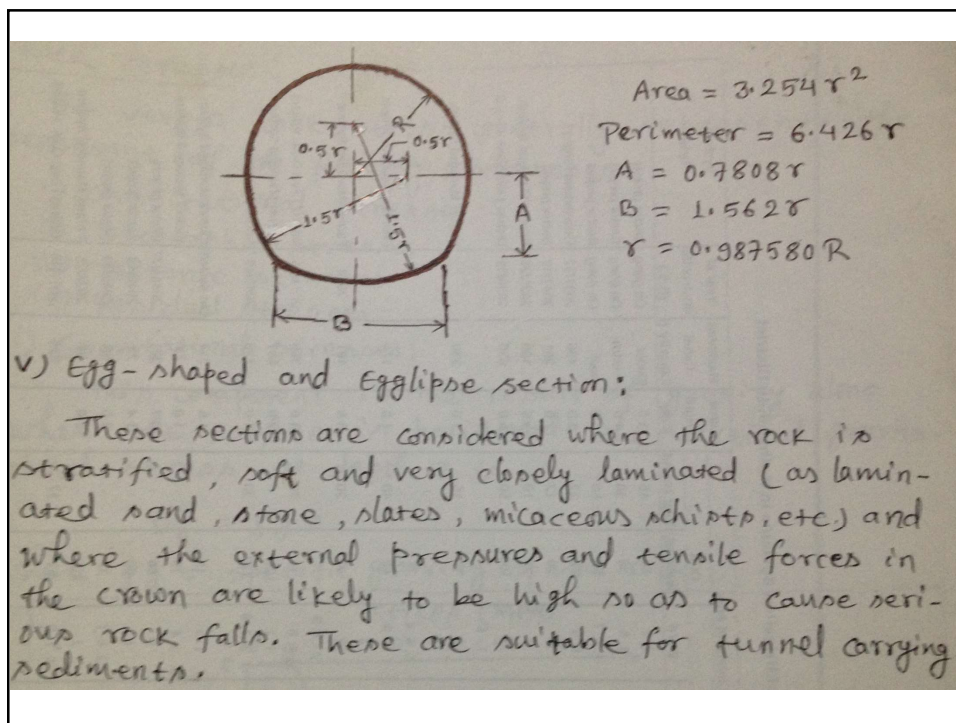 R
0.5r
0.5r
1.5r
1.5r
A
B
Area = 3.254 r²
Perimeter = 6.426 r
A = 0.7808 r
B = 1.562 r
r = 0.987580 R
V) Egg-shaped and Egglipse section:
These sections are considered where the rock is
stratified, soft and very closely laminated (as lamin-
ated sand, stone, slates, micaceous schists, etc.) and
where the external pressures and tensile forces in
the crown are likely to be high so as to cause seri-
ous rock falls. These are suitable for tunnel carrying
sediments.